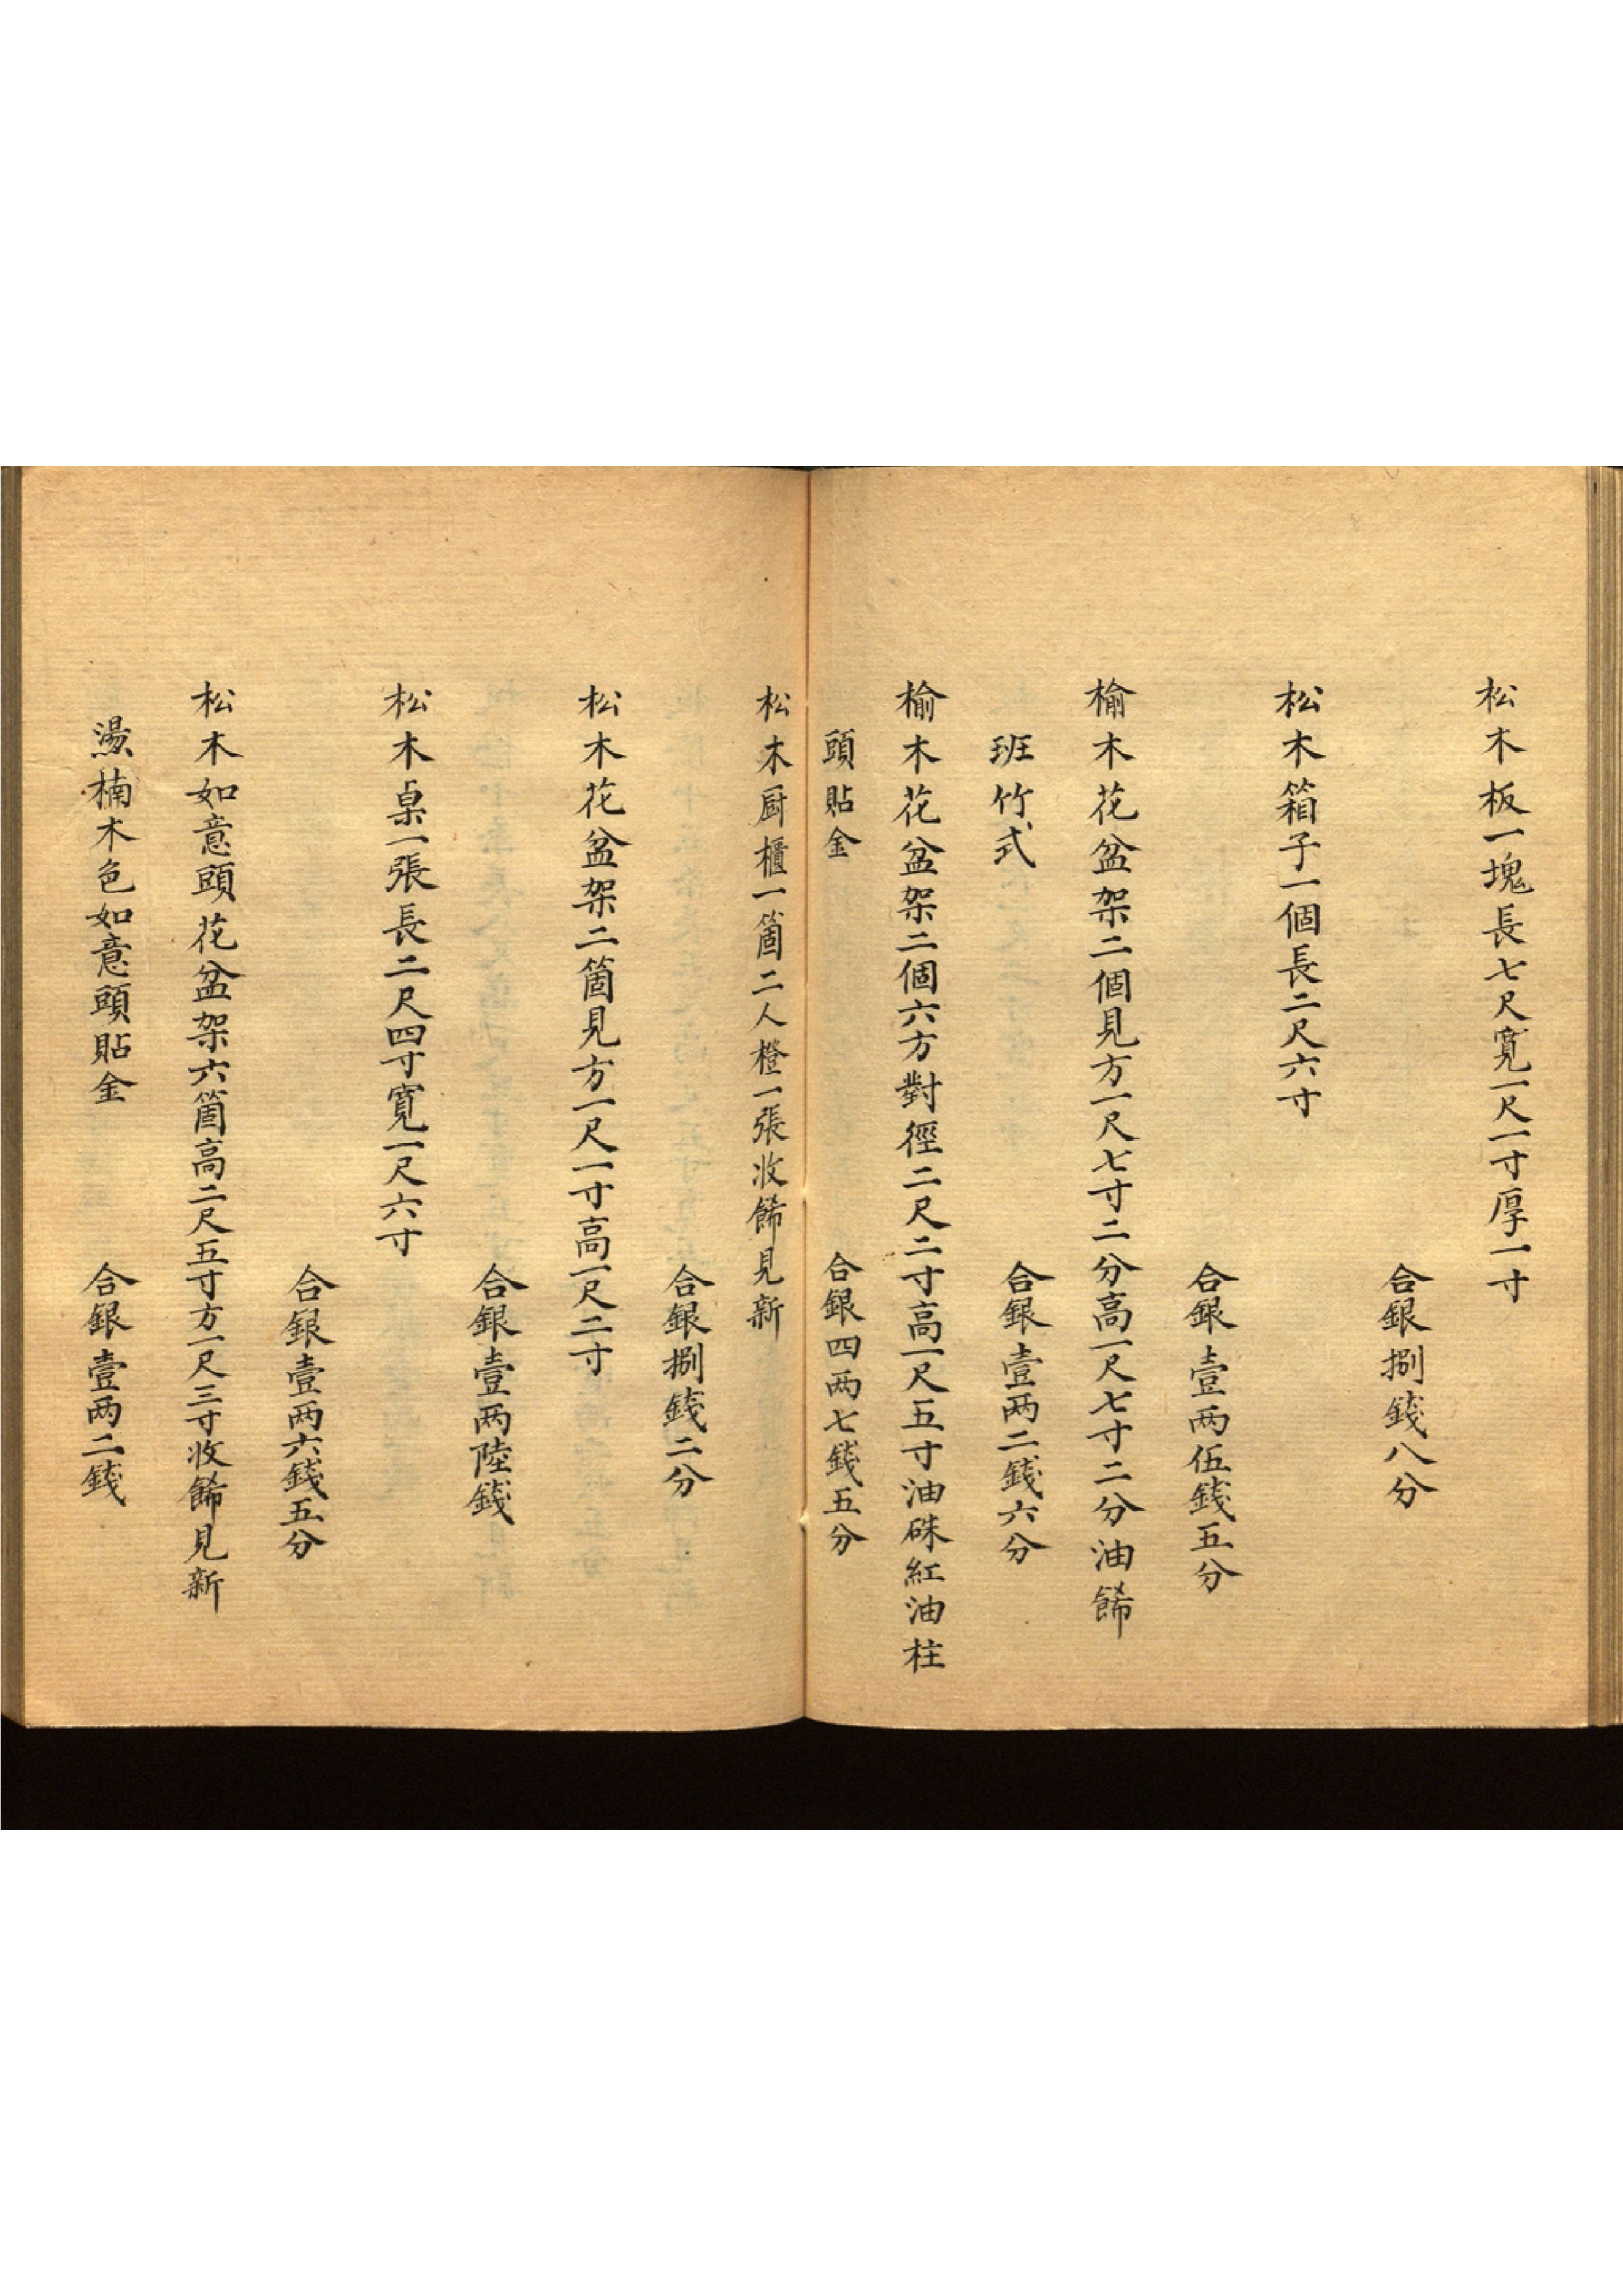 松木板一塊長七尺寬一尺一寸厚一寸
合銀捌錢八分
松木箱子一個長二尺六寸
合銀壹两伍錢五分
榆木花盆架二個見方一尺七寸二分高一尺七寸二分油餙
班竹式
合銀壹两二錢六分
榆木花盆架二個六方對徑二尺二寸高一尺五寸油硃紅油柱
頭貼金
合銀四两七錢五分
松木厨櫃一箇二人橙一張收餙見新
合銀捌錢二分
松木花盆架二箇見方一尺一寸高一尺二寸
合銀壹两陸錢
松木桌一張長二尺四寸寬一尺六寸
合銀壹两六錢五分
松木如意頭花盆架六箇高二尺五寸方一尺三寸收餙見新
燙楠木色如意頭貼金
合銀壹两二錢